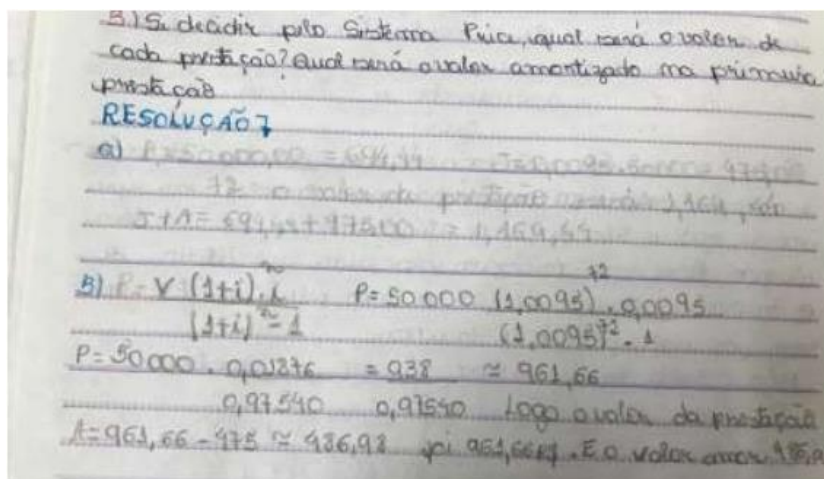 B) Se decidir pelo Sistema Price, qual será o valor de
cada prestação? Qual será o valor amortizado na primeira
prestação
RESOLUÇÃO 7
a) 50.000,00 = 694,44 J=0,0095.50000 = 475,00
72 o valor da prestação será 1,164,
J+A= 694,44+475,00 = 1,169,44
B) P= V (1+i)ⁿ.i P= 50 000 (1,0095)⁷² . 0,0095
(1+i)ⁿ-1 (1,0095)⁷² - 1
P= 50000 . 0,01876 = 938 ≈ 961,66
0,97540 0,97540 Logo o valor da prestação
A= 961,66 - 475 ≈ 486,98 foi 961,66 . E o valor amor